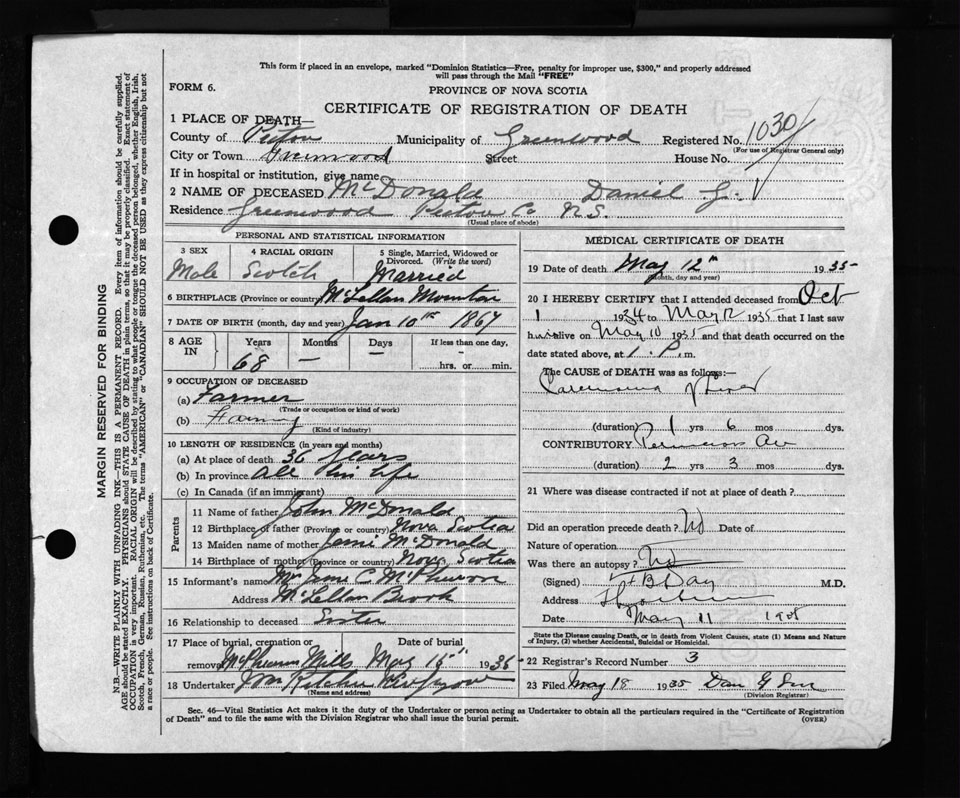 This form if placed in an envelope, marked "Dominion Statistics—Free, penalty for improper use, $300," and properly addressed
will pass through the Mail "FREE"
FORM 6.
PROVINCE OF NOVA SCOTIA
CERTIFICATE OF REGISTRATION OF DEATH
1 PLACE OF DEATH—
County of Pictou Municipality of Greenwood Registered No. 1030
(For use of Registrar General only)
City or Town Greenwood Street House No.
If in hospital or institution, give name
2 NAME OF DECEASED McDonald Daniel G.
Residence Greenwood Pictou Co N.S.
(Usual place of abode)
PERSONAL AND STATISTICAL INFORMATION
3 SEX
Male
4 RACIAL ORIGIN
Scotch
5 Single, Married, Widowed or
Divorced. (Write the word)
Married
6 BIRTHPLACE (Province or country) McLellan Mountain
7 DATE OF BIRTH (month, day and year) Jan 10th 1867
8 AGE IN
Years Months Days If less than one day,
68 — — hrs. or min.
9 OCCUPATION OF DECEASED
(a) Farmer
(Trade or occupation or kind of work)
(b) Farming
(Kind of industry)
10 LENGTH OF RESIDENCE (in years and months)
(a) At place of death 36 Years
(b) In province All his life
(c) In Canada (if an immigrant)
Parents
11 Name of father John McDonald
12 Birthplace of father (Province or country) Nova Scotia
13 Maiden name of mother McDonald
14 Birthplace of mother (Province or country) Nova Scotia
15 Informant's name Mrs C. McPherson
Address McLellan Brook
16 Relationship to deceased Sister
17 Place of burial, cremation or Date of burial
removal McPhersons Mills May 15" 1935
18 Undertaker
(Name and address)
MEDICAL CERTIFICATE OF DEATH
19 Date of death May 12th 1935
(Month, day and year)
20 I HEREBY CERTIFY that I attended deceased from Oct
1 1934 to May 12 1935 that I last saw
him alive on May 10 1935 and that death occurred on the
date stated above, at 1 P. m.
The CAUSE OF DEATH was as follows:
Carcinoma of Liver
(duration) 1 yrs 6 mos dys.
CONTRIBUTORY Pernicious
(duration) 2 yrs 3 mos dys.
21 Where was disease contracted if not at place of death?
Did an operation precede death? No Date of
Nature of operation
Was there an autopsy? No
(Signed) H B Day M.D.
Address
Date May 11
State the Disease causing Death, or in death from Violent Causes, state (1) Means and Nature
of Injury, (2) whether Accidental, Suicidal or Homicidal.
22 Registrar's Record Number 3
23 Filed May 18 1935 Dan G
(Division Registrar)
Sec. 46—Vital Statistics Act makes it the duty of the Undertaker or person acting as Undertaker to obtain all the particulars required in the "Certificate of Registration
of Death" and to file the same with the Division Registrar who shall issue the burial permit.
(OVER)
MARGIN RESERVED FOR BINDING
N.B.—WRITE PLAINLY WITH UNFADING INK—THIS IS A PERMANENT RECORD. Every item of information should be carefully supplied.
AGE should be stated EXACTLY. PHYSICIANS should STATE CAUSE OF DEATH in plain terms, so that it may be properly classified. Exact statement of
OCCUPATION is very important. RACIAL ORIGIN will be described by stating to what people or tongue the deceased person belonged, whether English, Irish,
Scotch, French, German, Russian, Ruthenian, etc. The terms "AMERICAN" or "CANADIAN" SHOULD NOT BE USED as they express citizenship but not
a race or people. See instructions on back of Certificate.